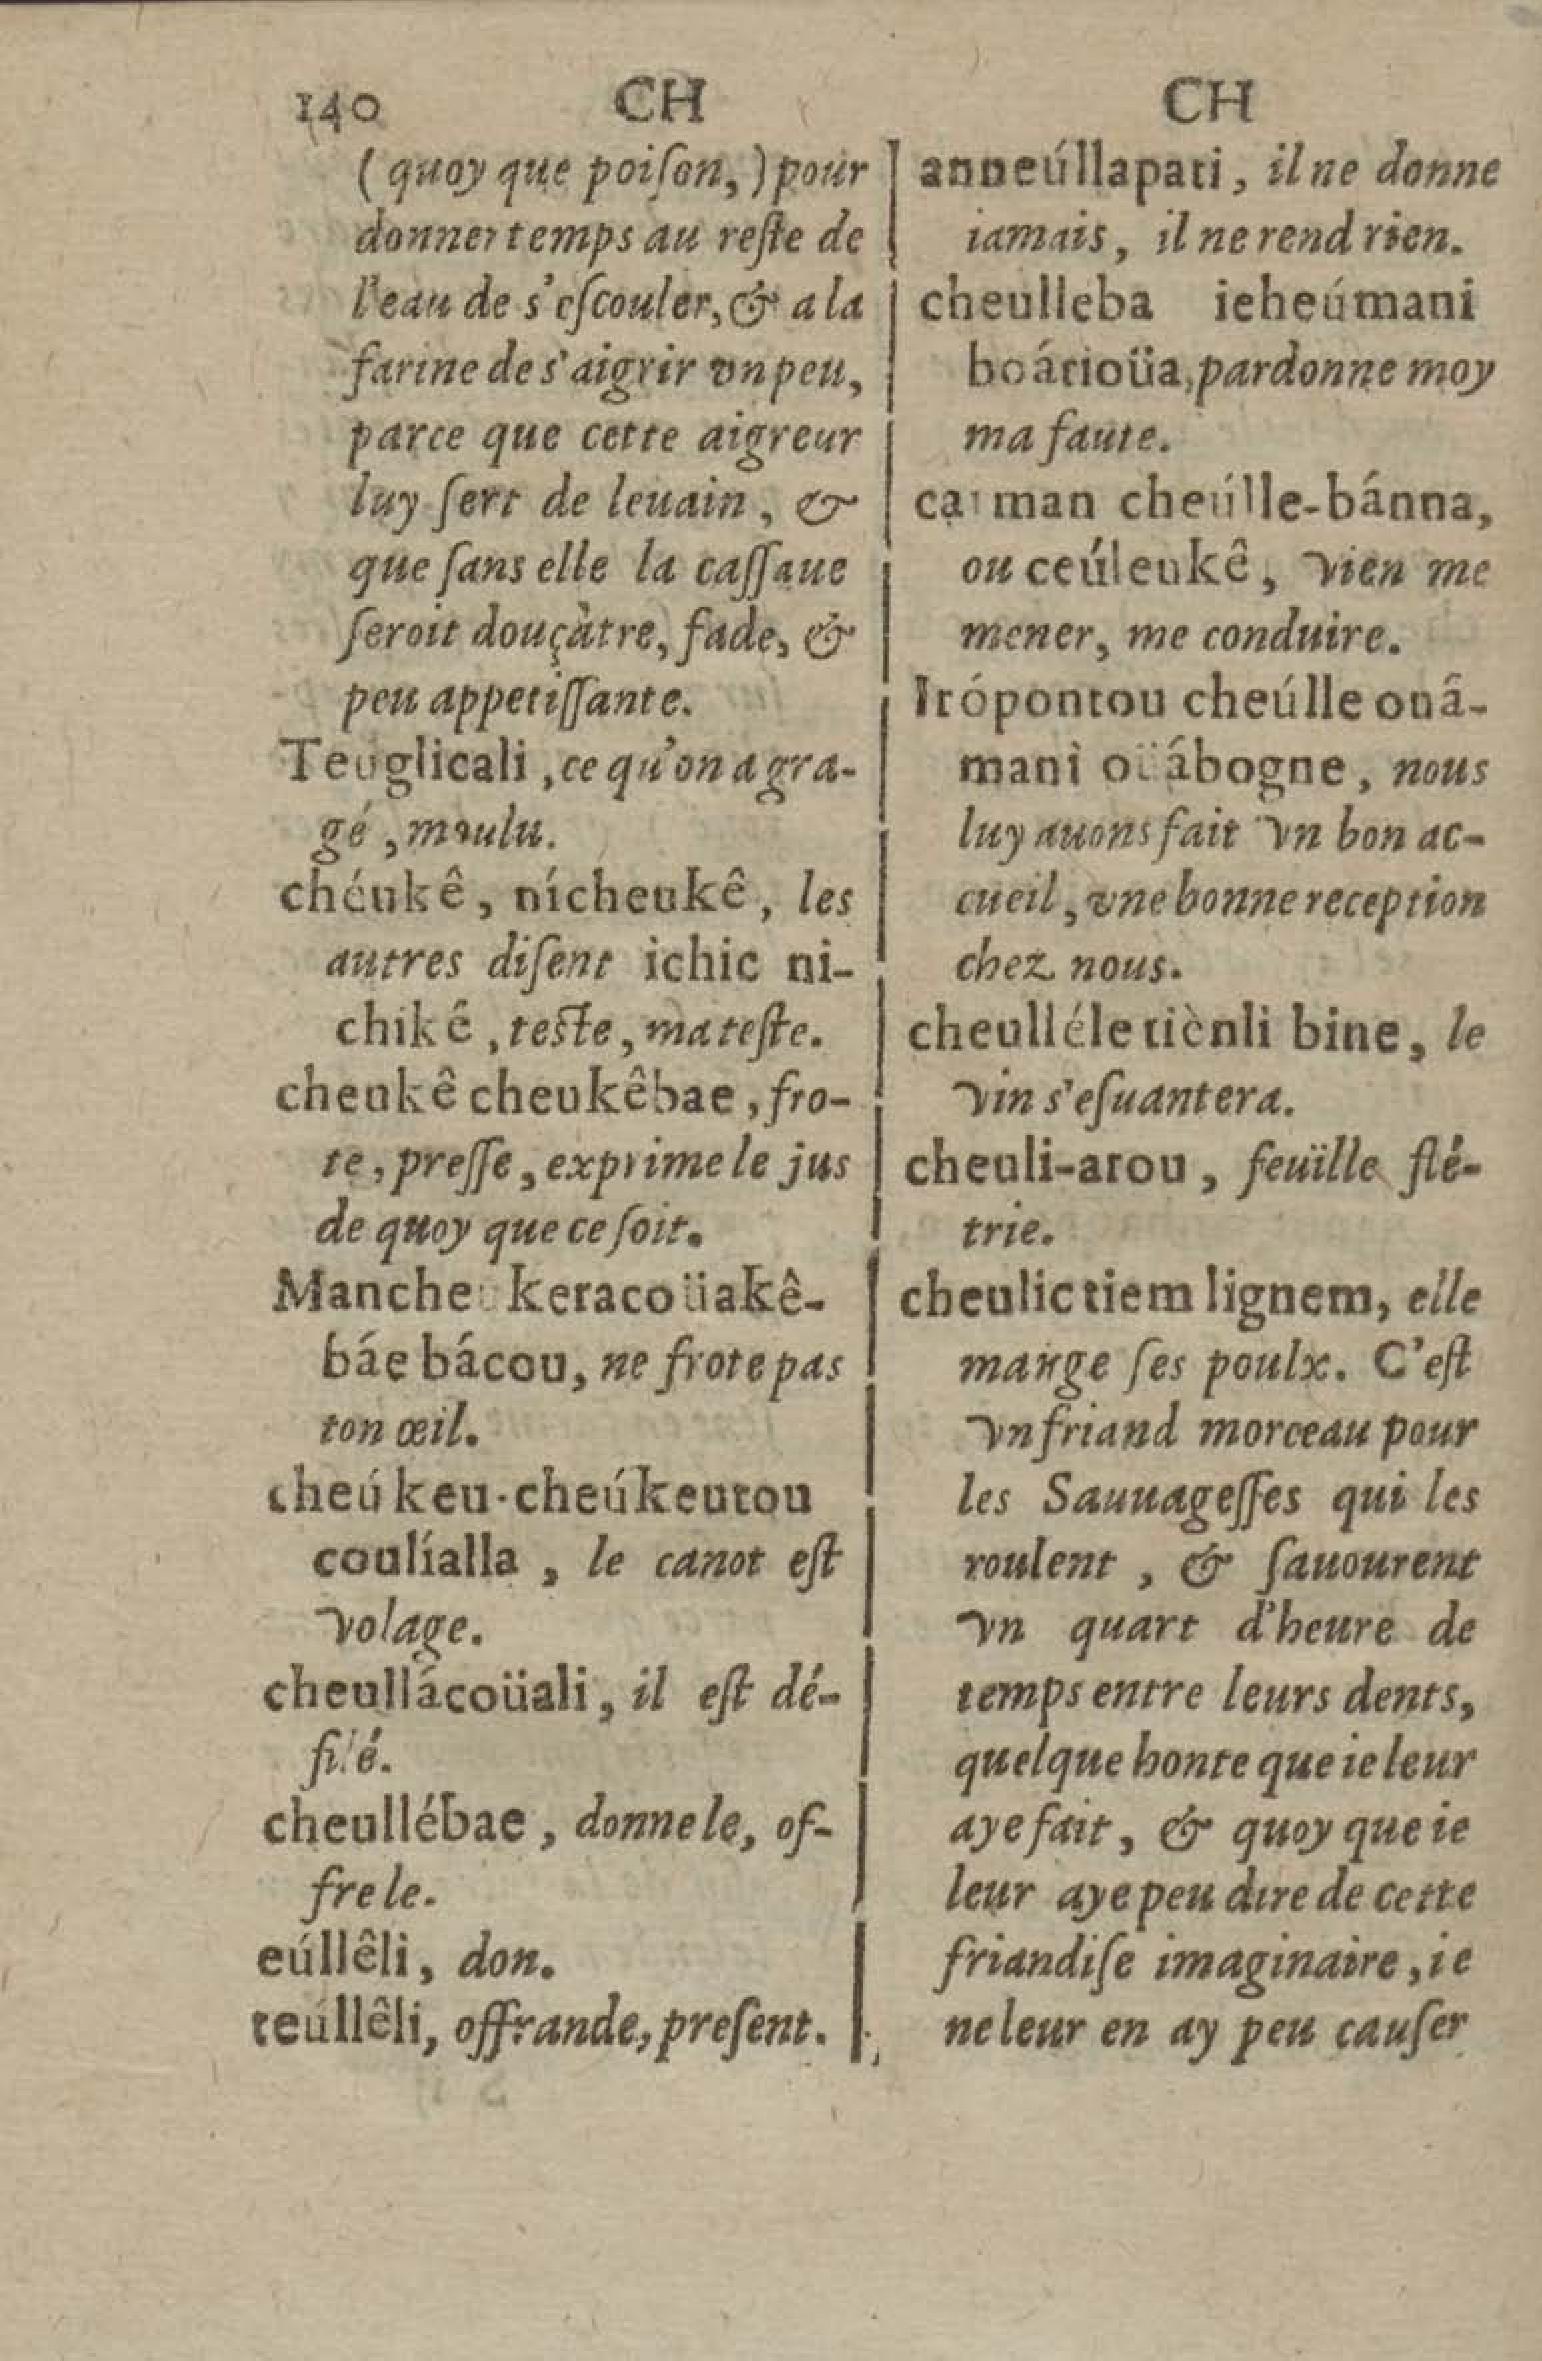 140 CH CH
(quoy que poiſon,) pour
donner temps au reſte de
l'eau de s'eſcouler, & a la
farine de s'aigrir vn peu,
parce que cette aigreur
luy ſert de leuain, &
que ſans elle la caſſaue
ſeroit douçàtre, fade, &
peu appetiſſante.
Teuglicali, ce qu'on a gra-
gé, moulu.
chéukê, nícheukê, les
autres diſent ichic ni-
chiké, teſte, ma teſte.
cheukê cheukêbae, fro-
te, preſſe, exprime le jus
de quoy que ce ſoit.
Mancheukeracoüakê-
báe bácou, ne frote pas
ton œil.
cheúkeu-cheúkeutou
coulíalla, le canot eſt
volage.
cheullácoüali, il eſt dé-
filé.
cheullébae, donne le, of-
fre le.
eúllêli, don.
teúllêli, offrande, preſent.
anneúllapati, il ne donne
iamais, il ne rend rien.
cheulleba ieheúmani
boátioüa, pardonne moy
ma faute.
caiman cheúlle-bánna,
ou ceúleukê, vien me
mener, me conduire.
Irópontou cheúlle ouâ-
mani oüábogne, nous
luy auons fait vn bon ac-
cueil, vne bonne reception
chez nous.
cheulléle tiènli bine, le
vin s'eſuantera.
cheuli-arou, feuïlle flé-
trie.
cheulic tiem lignem, elle
mange ſes poulx. C'eſt
vn friand morceau pour
les Sauuageſſes qui les
roulent, & ſauourent
vn quart d'heure de
temps entre leurs dents,
quelque honte que ie leur
aye fait, & quoy que ie
leur aye peu dire de cette
friandiſe imaginaire, ie
ne leur en ay peu cauſer